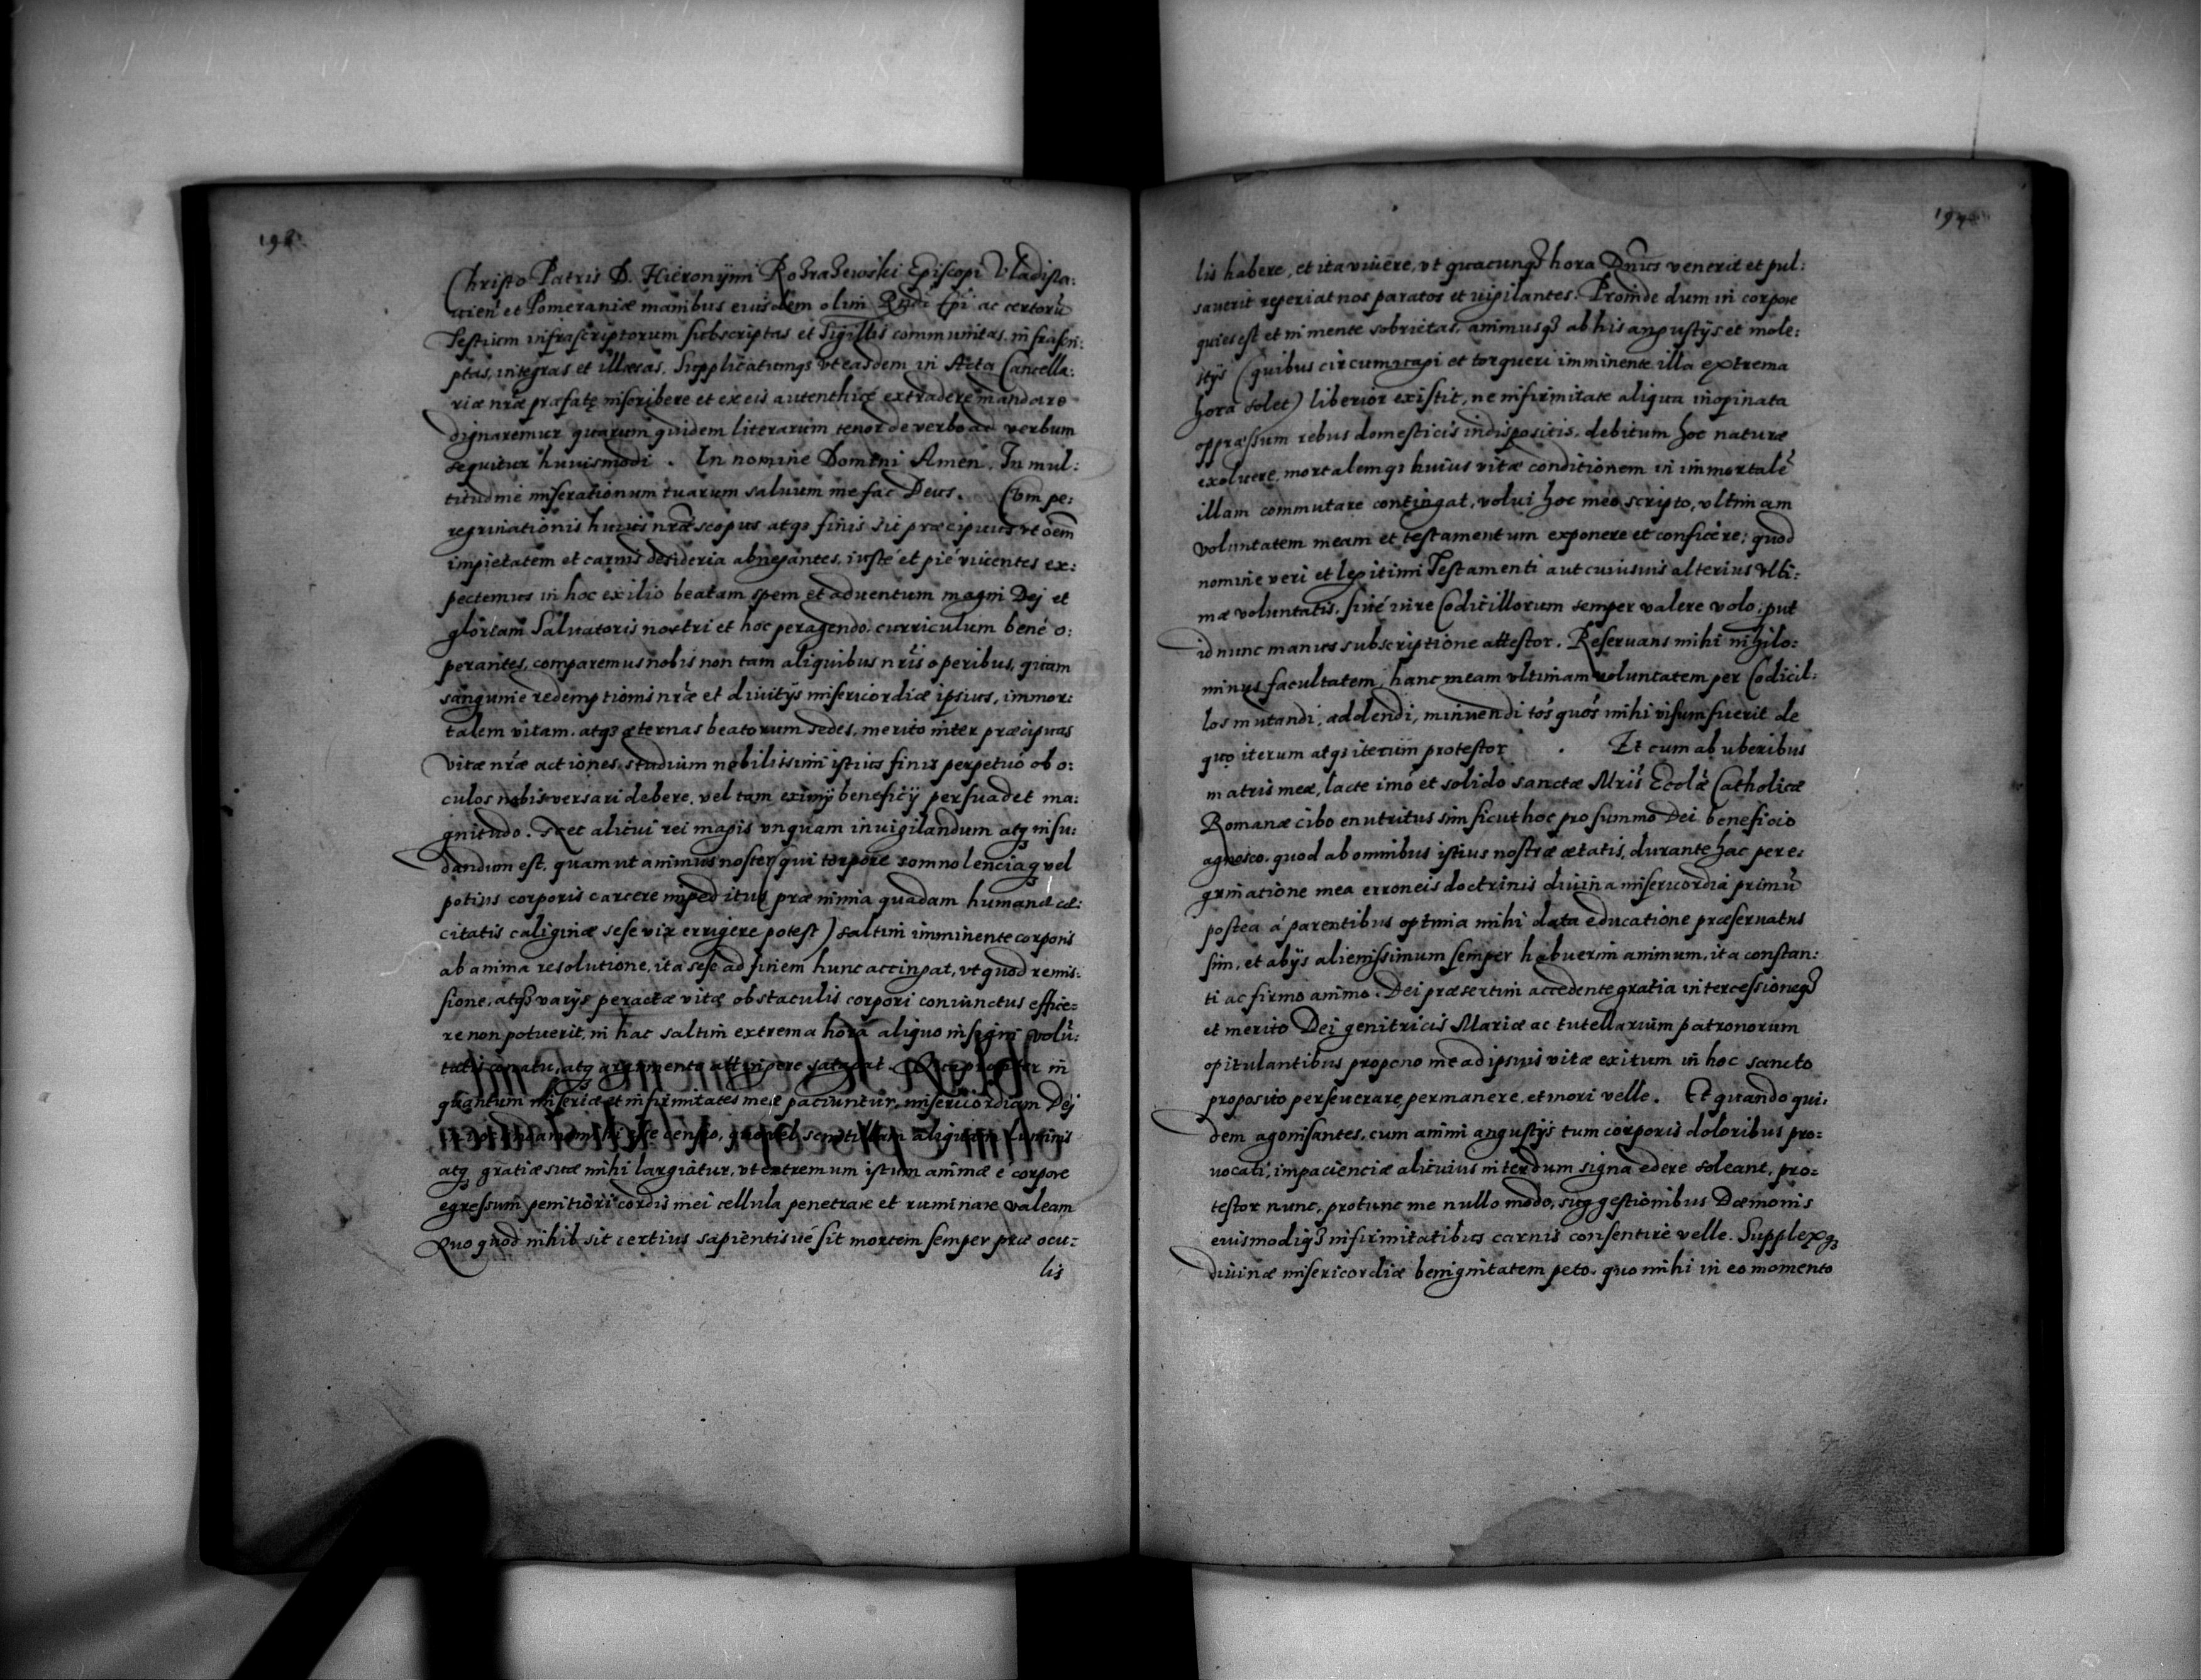 198
Christo Patris D. Hieronymi Rozrazewski Episcopi Vladisla:
uien et Pomeraniæ manibus eiusdem olim Rndi Epi ac certorū
Testium infrascriptorum subscriptas et Sigillis communitas, infrascri:
ptas, integras et illæsas, Supplicatumqȝ vt easdem in Acta Cancella:
riæ nræ præfatę inscribere et ex eis autenthicé extradere mandare
dignaremur quarum quidem literarum tenor de verbo ad verbum
sequitur huiusmodi . In nomine Domini Amen. In mul:
titudine miserationum tuarum saluum me fac Deus. Cum pe:
regrinationis huius nræ scopus atqȝ finis sit præcipuus vt oēm
impietatem et carnis desideria abnegantes, iusté et pié viuentes ex:
pectemus in hoc exilio beatam spem et aduentum magni Dej et
gloriam Saluatoris nostri et hoc peragendo curriculum bené o:
perantes, comparemus nobis non tam aliquibus nris operibus, quam
sanguine redemptionis nræ et diuitijs misericordiæ ipsius, immor:
talem vitam, atqȝ æternas beatorum sedes, merito inter præcipuas
vitæ nræ actiones, studium nobilissimi istius finis perpetuó ob o:
culos nobis versari debere, vel tam eximij beneficij persuadet ma:
gnitudo. Nec alicui rei magis vnquam inuigilandum atqȝ insu:
dandum est, quam ut animus noster (qui torpore somnolenciaqȝ vel
potius corporis carcere impeditus præ nimia quadam humanæ cæ:
citatis caliginæ sese vix errigere potest) saltim imminente corporis
ab anima resolutione, ita sese ad finem hunc accingat, vt quod remis:
sione, atqȝ varijs peractæ vitæ obstaculis corpori coniunctus effice:
re non potuerit, in hac saltim extrema hora aliquo insigni
conatu, atqȝ argumento attingere satagat. in
quantum miseriæ et infirmitates meæ paciuntur, misericordiam Dej
atqȝ gratiæ suæ mihi largiatur, vt extremum istum animæ é corpore
egressum penitiori cordis mei cellula penetrare et ruminare valeam
Quo quod nihil sit certius sapientisué sit mortem semper præ ocu:
lis
194
lis habere, et ita viuere, vt quacunqȝ hora Dnus venerit et pul:
sauerit reperiat nos paratos et uigilantes. Proinde dum in corpore
quies est et in mente sobrietas, animusqȝ ab his angustijs et mole:
stijs (quibus circumuagi et torqueri imminente illa extrema
hora solet) liberior existit, ne infirmitate aliqua inopinata
oppræssum rebus domesticis indispositis, debitum hoc naturæ
exoluere, mortalemqȝ huius vitæ conditionem in immortalē
illam commutare contingat, volui hoc meo scripto, vltimam
voluntatem meam et testamentum exponere et conficere; quod
nomine veri et legitimi Testamenti aut cuiusuis alterius vlti:
mæ voluntatis, siué iure Codicillorum semper valere volo, put
id nunc manus subscriptione attestor. Reseruans mihi nihilo:
minus facultatem, hanc meam vltimam voluntatem per Codicil:
los mutandi, addendi, minuendi tos quos mihi visum fuerit de
quo iterum atqȝ iterum protestor . Et cum ab uberibus
matris meæ, lacte imó et solido sanctæ Mris Ecclæ Catholicæ
Romanæ cibo enutritus sim sicut hoc pro summo Dei beneficio
agnosco, quod ab omnibus istius nostræ ætatis, durante hac pere:
grinatione mea erroneis doctrinis diuina misericordia primū
postea á parentibus optima mihi data educatione præseruatus
sim, et ab ijs alienissimum semper habuerim animum, ita constan:
ti ac firmo animo, Dei præsertim accedente gratia intercessioneqȝ
et merito Dei genitricis Mariæ ac tutellarium patronorum
opitulantibus propono me ad ipsius vitæ exitum in hoc sancto
proposito perseuerare, permanere, et mori velle. Et quando qui:
dem agonisantes, cum animi angustijs tum corporis doloribus pro:
uocati, impacienciæ alicuius interdum signa edere soleant, pro:
testor nunc, protunc me nullo modo, suggestionibus Dæmonis
eiusmodiqȝ infirmitatibus carnis consentire velle. Supplexqȝ
diuinæ misericordiæ benignitatem peto, quo mihi in eo momento